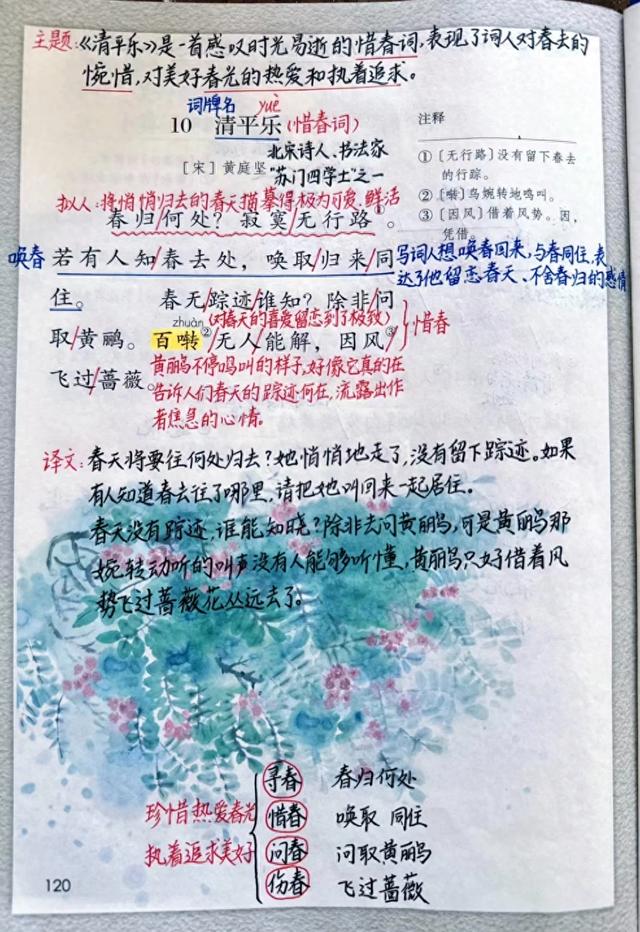 主题:《清平乐》是一首感叹时光易逝的惜春词,表现了词人对春去的
惋惜,对美好春光的热爱和执着追求。
词牌名 yuè
10 清平乐(惜春词)
[宋]黄庭坚 北宋诗人、书法家
“苏门四学士”之一
注释
①〔无行路〕没有留下春去
的行踪。
②〔啭〕鸟婉转地鸣叫。
③〔因风〕借着风势。因,
凭借。
拟人:将悄悄归去的春天描摹得极为可爱、鲜活
春归/何处?寂寞/无行路①。
唤春 若有人知/春去处,唤取/归来/同
写词人想唤春回来,与春同住,表
达了他留恋春天、不舍春归的感情
住。 春无/踪迹/谁知?除非/问
zhuàn (对春天的喜爱留恋到了极致)
取/黄鹂。百啭②/无人/能解,因风/③ 惜春
黄鹂不停鸣叫的样子,好像它真的在
飞过/蔷薇。
告诉人们春天的踪迹何在,流露出作
者焦急的心情。
译文:春天将要往何处归去?她悄悄地走了,没有留下踪迹。如果
有人知道春去往了哪里,请把她叫回来一起居住。
春天没有踪迹,谁能知晓?除非去问黄鹂鸟,可是黄鹂鸟那
婉转动听的叫声没有人能够听懂,黄鹂鸟只好借着风
势飞过蔷薇花丛远去了。
寻春 春归何处
珍惜热爱春光 惜春 唤取 同住
执着追求美好 问春 问取黄鹂
伤春 飞过蔷薇
120